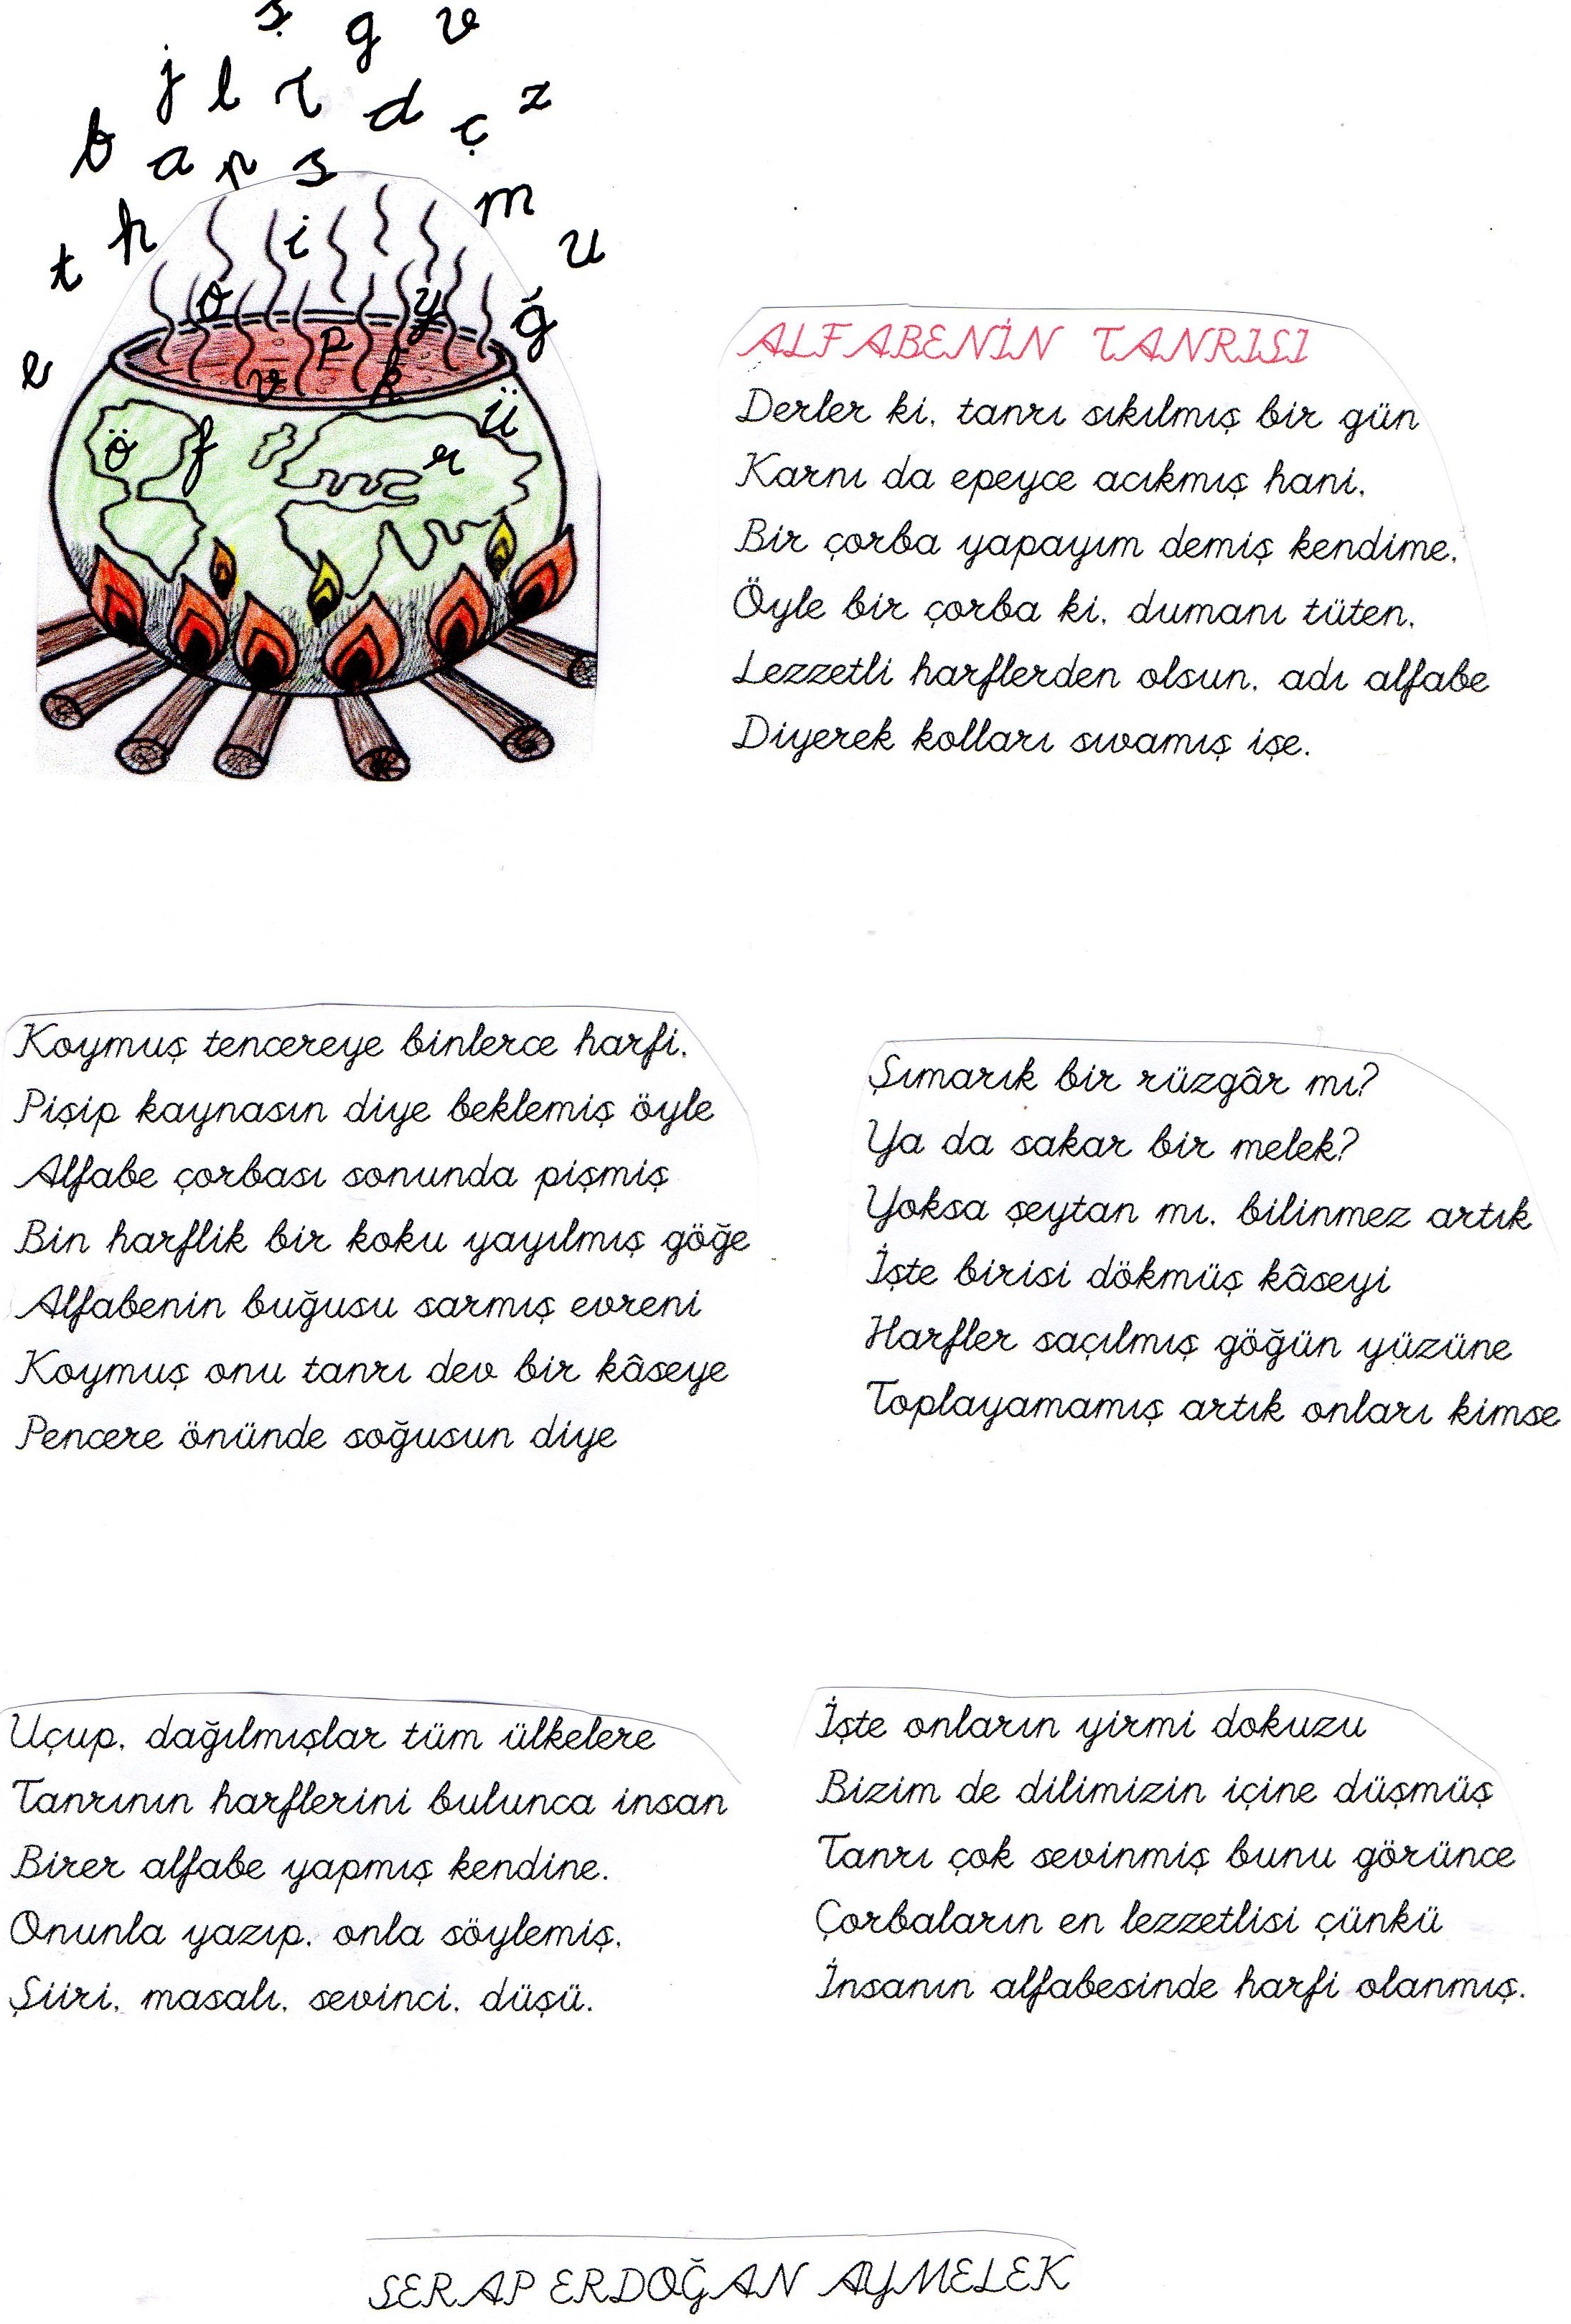 ş g v
j l r d ç z
b a n s
t h i m u
o y ğ
e p v k ü
ö f r
ALFABENİN TANRISI
Derler ki, tanrı sıkılmış bir gün
Karnı da epeyce acıkmış hani,
Bir çorba yapayım demiş kendime,
Öyle bir çorba ki, dumanı tüten,
Lezzetli harflerden olsun, adı alfabe
Diyerek kolları sıvamış işe.
Koymuş tencereye binlerce harfi,
Pişip kaynasın diye beklemiş öyle
Alfabe çorbası sonunda pişmiş
Bin harflik bir koku yayılmış göğe
Alfabenin buğusu sarmış evreni
Koymuş onu tanrı dev bir kâseye
Pencere önünde soğusun diye
Şımarık bir rüzgâr mı?
Ya da sakar bir melek?
Yoksa şeytan mı, bilinmez artık
İşte birisi dökmüş kâseyi
Harfler saçılmış göğün yüzüne
Toplayamamış artık onları kimse
Uçup, dağılmışlar tüm ülkelere
Tanrının harflerini bulunca insan
Birer alfabe yapmış kendine.
Onunla yazıp, onla söylemiş,
Şiiri, masalı, sevinci, düşü.
İşte onların yirmi dokuzu
Bizim de dilimizin içine düşmüş
Tanrı çok sevinmiş bunu görünce
Çorbaların en lezzetlisi çünkü
İnsanın alfabesinde harfi olanmış.
SERAP ERDOĞAN AYMELEK